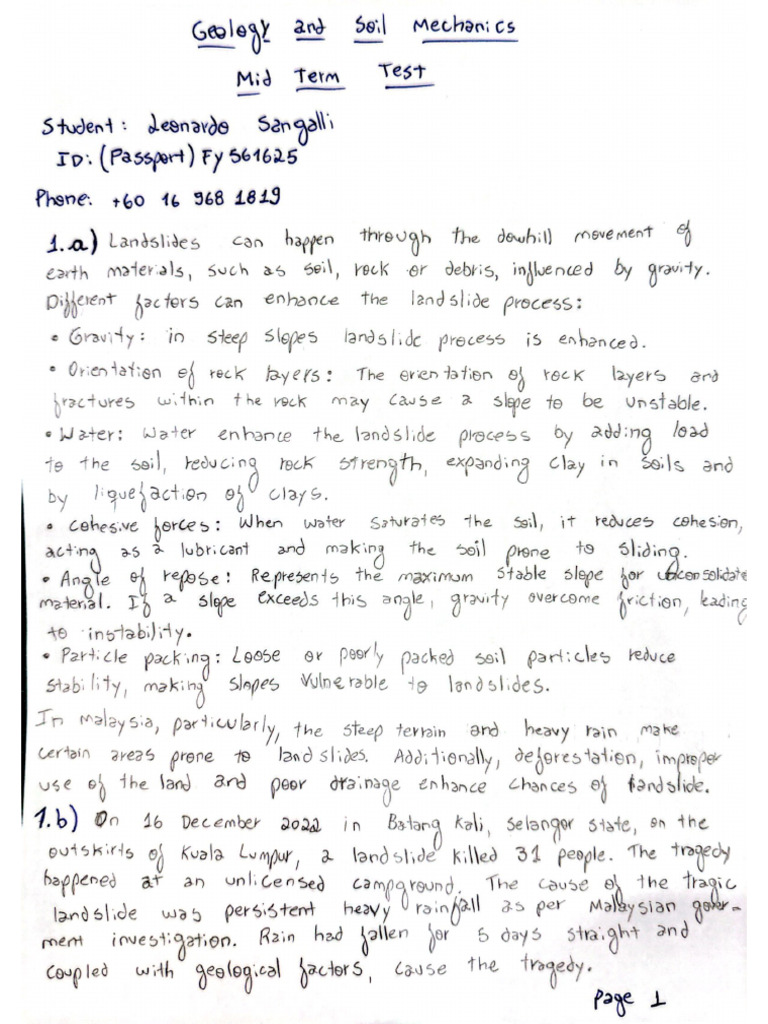 Geology and Soil Mechanics
Mid Term Test
Student: Leonardo Sangalli
ID: (Passport) FY 561625
Phone: +60 16 968 1819
1.a) Landslides can happen through the dowhill movement of
earth materials, such as soil, rock or debris, influenced by gravity.
Different factors can enhance the landslide process:
• Gravity: in steep slopes landslide process is enhanced.
• Orientation of rock layers: The orientation of rock layers and
fractures within the rock may cause a slope to be unstable.
• Water: Water enhance the landslide process by adding load
to the soil, reducing rock strength, expanding clay in soils and
by liquefaction of clays.
• Cohesive forces: When water saturates the soil, it reduces cohesion,
acting as a lubricant and making the soil prone to sliding.
• Angle of repose: Represents the maximum stable slope for unconsolidate
material. If a slope exceeds this angle, gravity overcome friction, leading
to instability.
• Particle packing: Loose or poorly packed soil particles reduce
stability, making slopes vulnerable to landslides.
In Malaysia, particularly, the steep terrain and heavy rain make
certain areas prone to landslides. Additionally, deforestation, improper
use of the land and poor drainage enhance chances of landslide.
1.b) On 16 December 2022 in Batang Kali, Selangor state, on the
outskirts of Kuala Lumpur, a landslide killed 31 people. The tragedy
happened at an unlicensed campground. The cause of the tragic
landslide was persistent heavy rainfall as per Malaysian gover-
ment investigation. Rain had fallen for 5 days straight and
coupled with geological factors, cause the tragedy.
Page 1